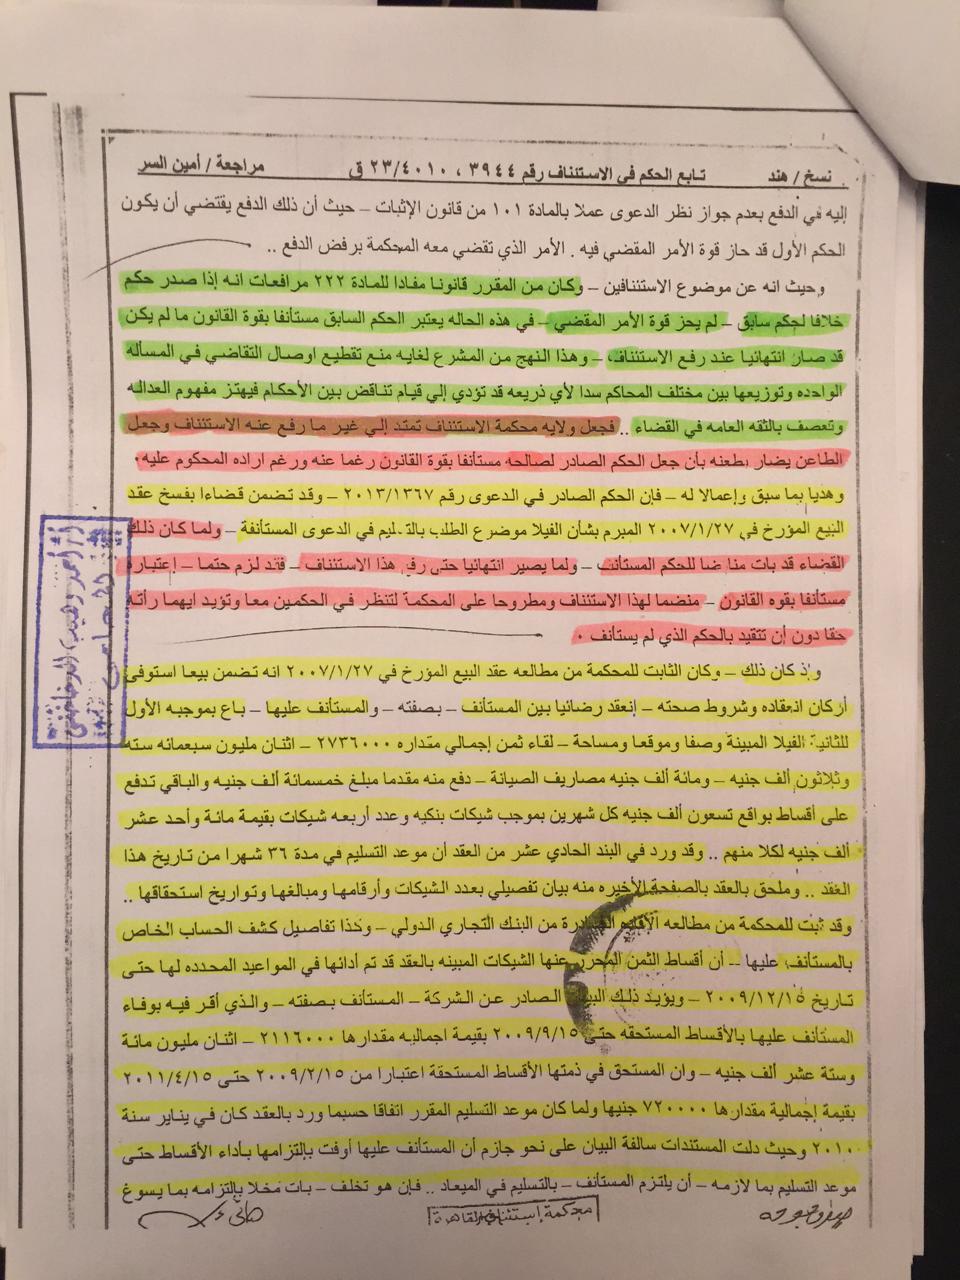 نسخ / هند تابع الحكم في الاستئناف رقم ٣٩٤٤ ، ٢٣/٤٠١٠ ق مراجعة / أمين السر
إليه في الدفع بعدم جواز نظر الدعوى عملا بالمادة ١٠١ من قانون الإثبات – حيث أن ذلك الدفع يقتضي أن يكون
الحكم الأول قد حاز قوة الأمر المقضي فيه . الأمر الذي تقضي معه المحكمة برفض الدفع ..
وحيث انه عن موضوع الاستئنافين – وكان من المقرر قانونا مفادا للمادة ٢٢٢ مرافعات انه إذا صدر حكم
خلافا لحكم سابق – لم يحز قوة الأمر المقضي – في هذه الحاله يعتبر الحكم السابق مستأنفا بقوة القانون ما لم يكن
قد صار انتهائيا عند رفع الاستئناف – وهذا النهج من المشرع لغايه منع تقطيع اوصال التقاضي في المسأله
الواحده وتوزيعها بين مختلف المحاكم سدا لأي ذريعه قد تؤدي إلي قيام تناقض بين الأحكام فيهتز مفهوم العداله
وتعصف بالثقه العامه في القضاء .. فجعل ولايه محكمة الاستئناف تمتد إلي غير ما رفع عنه الاستئناف وجعل
الطاعن يضار بطعنه بأن جعل الحكم الصادر لصالحه مستأنفا بقوة القانون رغما عنه ورغم اراده المحكوم عليه .
وهديا بما سبق وإعمالا له – فإن الحكم الصادر في الدعوى رقم ٢٠١٣/١٣٦٧ – وقد تضمن قضاءا بفسخ عقد
البيع المؤرخ في ٢٠٠٧/١/٢٧ المبرم بشأن الفيلا موضوع الطلب بالتسليم في الدعوى المستأنفة – ولما كان ذلك
القضاء قد بات مناقضا للحكم المستأنف – ولما يصير انتهائيا حتى رفع هذا الاستئناف – فقد لزم حتما – إعتباره
مستأنفا بقوه القانون – منضما لهذا الاستئناف ومطروحا على المحكمة لتنظر في الحكمين معا وتؤيد ايهما رأته
حقا دون إن تتقيد بالحكم الذي لم يستأنف .
وإذ كان ذلك – وكان الثابت للمحكمة من مطالعه عقد البيع المؤرخ في ٢٠٠٧/١/٢٧ انه تضمن بيعا استوفى
أركان انعقاده وشروط صحته – إنعقد رضائيا بين المستأنف – بصفته – والمستأنف عليها – باع بموجبه الأول
للثانية الفيلا المبينة وصفا وموقعا ومساحة – لقاء ثمن إجمالي مقداره ٢٧٣٦٠٠٠ – اثنان مليون سبعمائه سته
وثلاثون ألف جنيه – ومائة ألف جنيه مصاريف الصيانة – دفع منه مقدما مبلغ خمسمائة ألف جنيه والباقي تدفع
على أقساط بواقع تسعون ألف جنيه كل شهرين بموجب شيكات بنكيه وعدد أربعه شيكات بقيمة مائة وأحد عشر
ألف جنيه لكلا منهم .. وقد ورد في البند الحادي عشر من العقد أن موعد التسليم في مدة ٣٦ شهرا من تاريخ هذا
العقد .. وملحق بالعقد بالصفحة الأخيره منه بيان تفصيلي بعدد الشيكات وأرقامها ومبالغها وتواريخ استحقاقها ..
وقد ثبت للمحكمة من مطالعه الصادرة من البنك التجاري الدولي – وكذا تفاصيل كشف الحساب الخاص
بالمستأنف عليها – أن أقساط الثمن المحرر عنها الشيكات المبينه بالعقد قد تم أدائها في المواعيد المحدده لها حتى
تاريخ ٢٠٠٩/١٢/١٥ – ويؤيد ذلك البيان الصادر عن الشركة – المستأنف بصفته – والذي أقر فيه بوفاء
المستأنف عليها بالأقساط المستحقه حتى ٢٠٠٩/٩/١٥ بقيمة اجماليه مقدارها ٢١١٦٠٠٠ – اثنان مليون مائة
وستة عشر ألف جنيه – وان المستحق في ذمتها الأقساط المستحقة اعتبارا من ٢٠٠٩/٢/١٥ حتى ٢٠١١/٤/١٥
بقيمة إجمالية مقدارها ٧٢٠٠٠٠ جنيها ولما كان موعد التسليم المقرر اتفاقا حسبما ورد بالعقد كان في يناير سنة
٢٠١٠ وحيث دلت المستندات سالفة البيان على نحو جازم أن المستأنف عليها أوفت بإلتزامها بأداء الأقساط حتى
موعد التسليم بما لازمه – أن يلتزم المستأنف – بالتسليم في الميعاد .. فإن هو تخلف – بات مخلا بإلتزامه بما يسوغ
محكمة إستئناف القاهرة